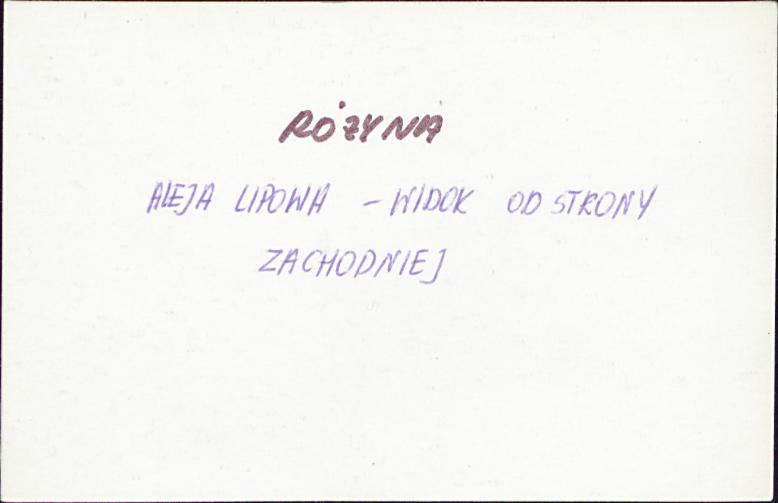 RÓŻYNA
ALEJA LIPOWA - WIDOK OD STRONY
ZACHODNIEJ